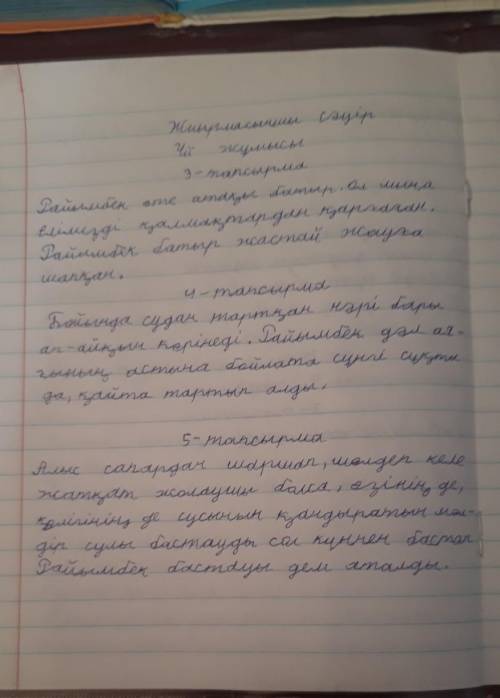 Жиырмасыншы сәуір
Үй жұмысы
3-тапсырма
Райымбек өте атақты батыр. Ол мына
елімізді қалмақтардан қорғаған.
Райымбек батыр жастай жауға
шапқан.
4-тапсырма
Бойында судан тартқан нәрі бары
ап-айқын көрінеді. Райымбек дәл ат-
тының астына бойлата сүңгі сұқты
да, қайта тартып алды.
5-тапсырма
Алыс сапардан шаршап, шөлдеп келе
жатқат жолаушы болса, өзінің де,
көлігінің де сусынын қандыратын мөл-
дір сулы бастауды сол күннен бастап
Райымбек бастауы дем аталды.